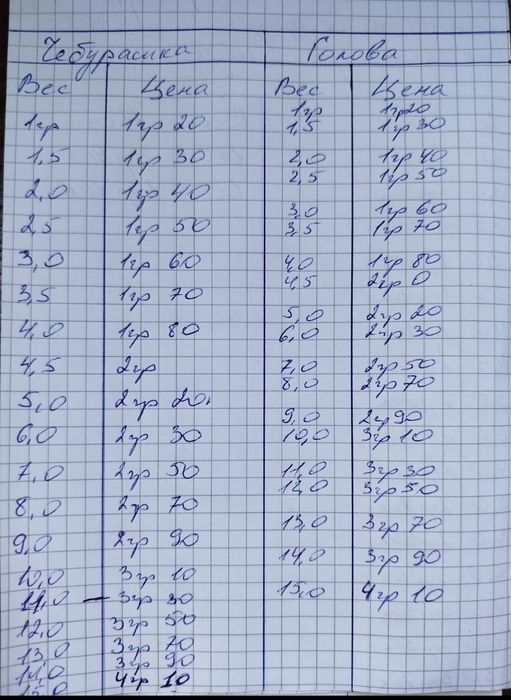 Чебурашка Голова
Вес Цена Вес Цена
1гр 1гр 20 1гр 1гр20
1,5 1гр 30 1,5 1гр 30
2,0 1гр 40 2,0 1гр 40
2,5 1гр 50 2,5 1гр 50
3,0 1гр 60 3,0 1гр 60
3,5 1гр 70 3,5 1гр 70
4,0 1гр 80 4,0 1гр 80
4,5 2гр 4,5 2гр 0
5,0 2гр 20 5,0 2гр 20
6,0 2гр 30 6,0 2гр 30
7,0 2гр 50 7,0 2гр 50
8,0 2гр 70 8,0 2гр 70
9,0 2гр 90 9,0 2гр 90
10,0 3гр 10 10,0 3гр 10
11,0 – 3гр 30 11,0 3гр 30
12,0 3гр 50 12,0 3гр 50
13,0 3гр 70 13,0 3гр 70
14,0 3гр 90 14,0 3гр 90
15,0 4гр 10 15,0 4гр 10